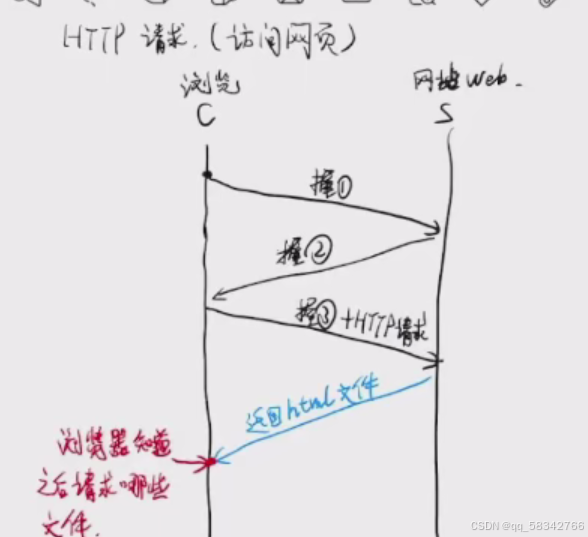 HTTP 请求.(访问网页)
浏览 网址Web.
C S
握①
握②
握③+HTTP请求
返回html文件
浏览器知道
之后请求哪些
文件.
CSDN @qq_58342766